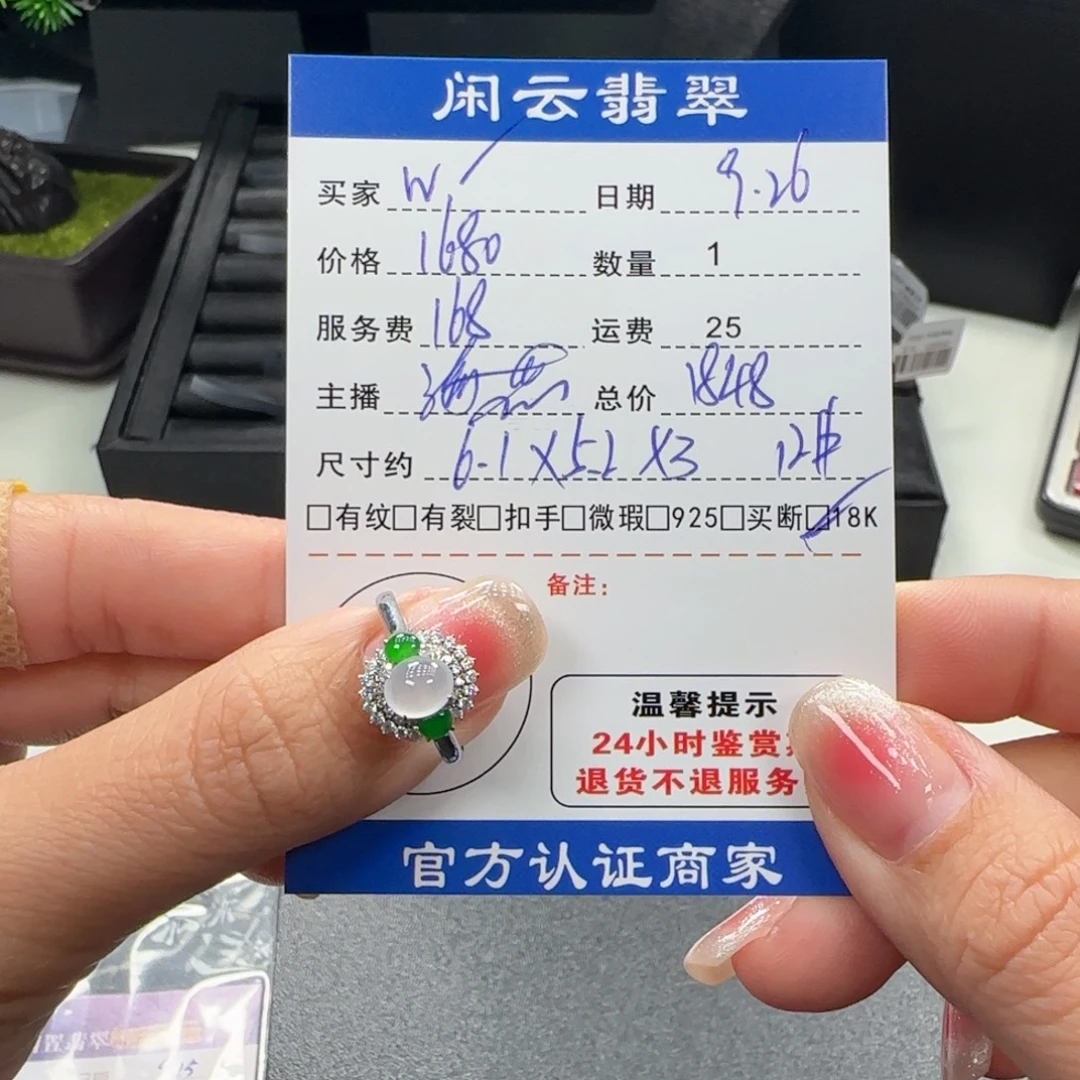 闲云翡翠
买家 W 日期 9.26
价格 1680 数量 1
服务费 168 运费 25
主播 总价 1848
尺寸约 6.1X5.2X3 12#
□有纹□有裂□扣手□微瑕□925□买断□18K
备注：
温馨提示
24小时鉴赏
退货不退服务
官方认证商家